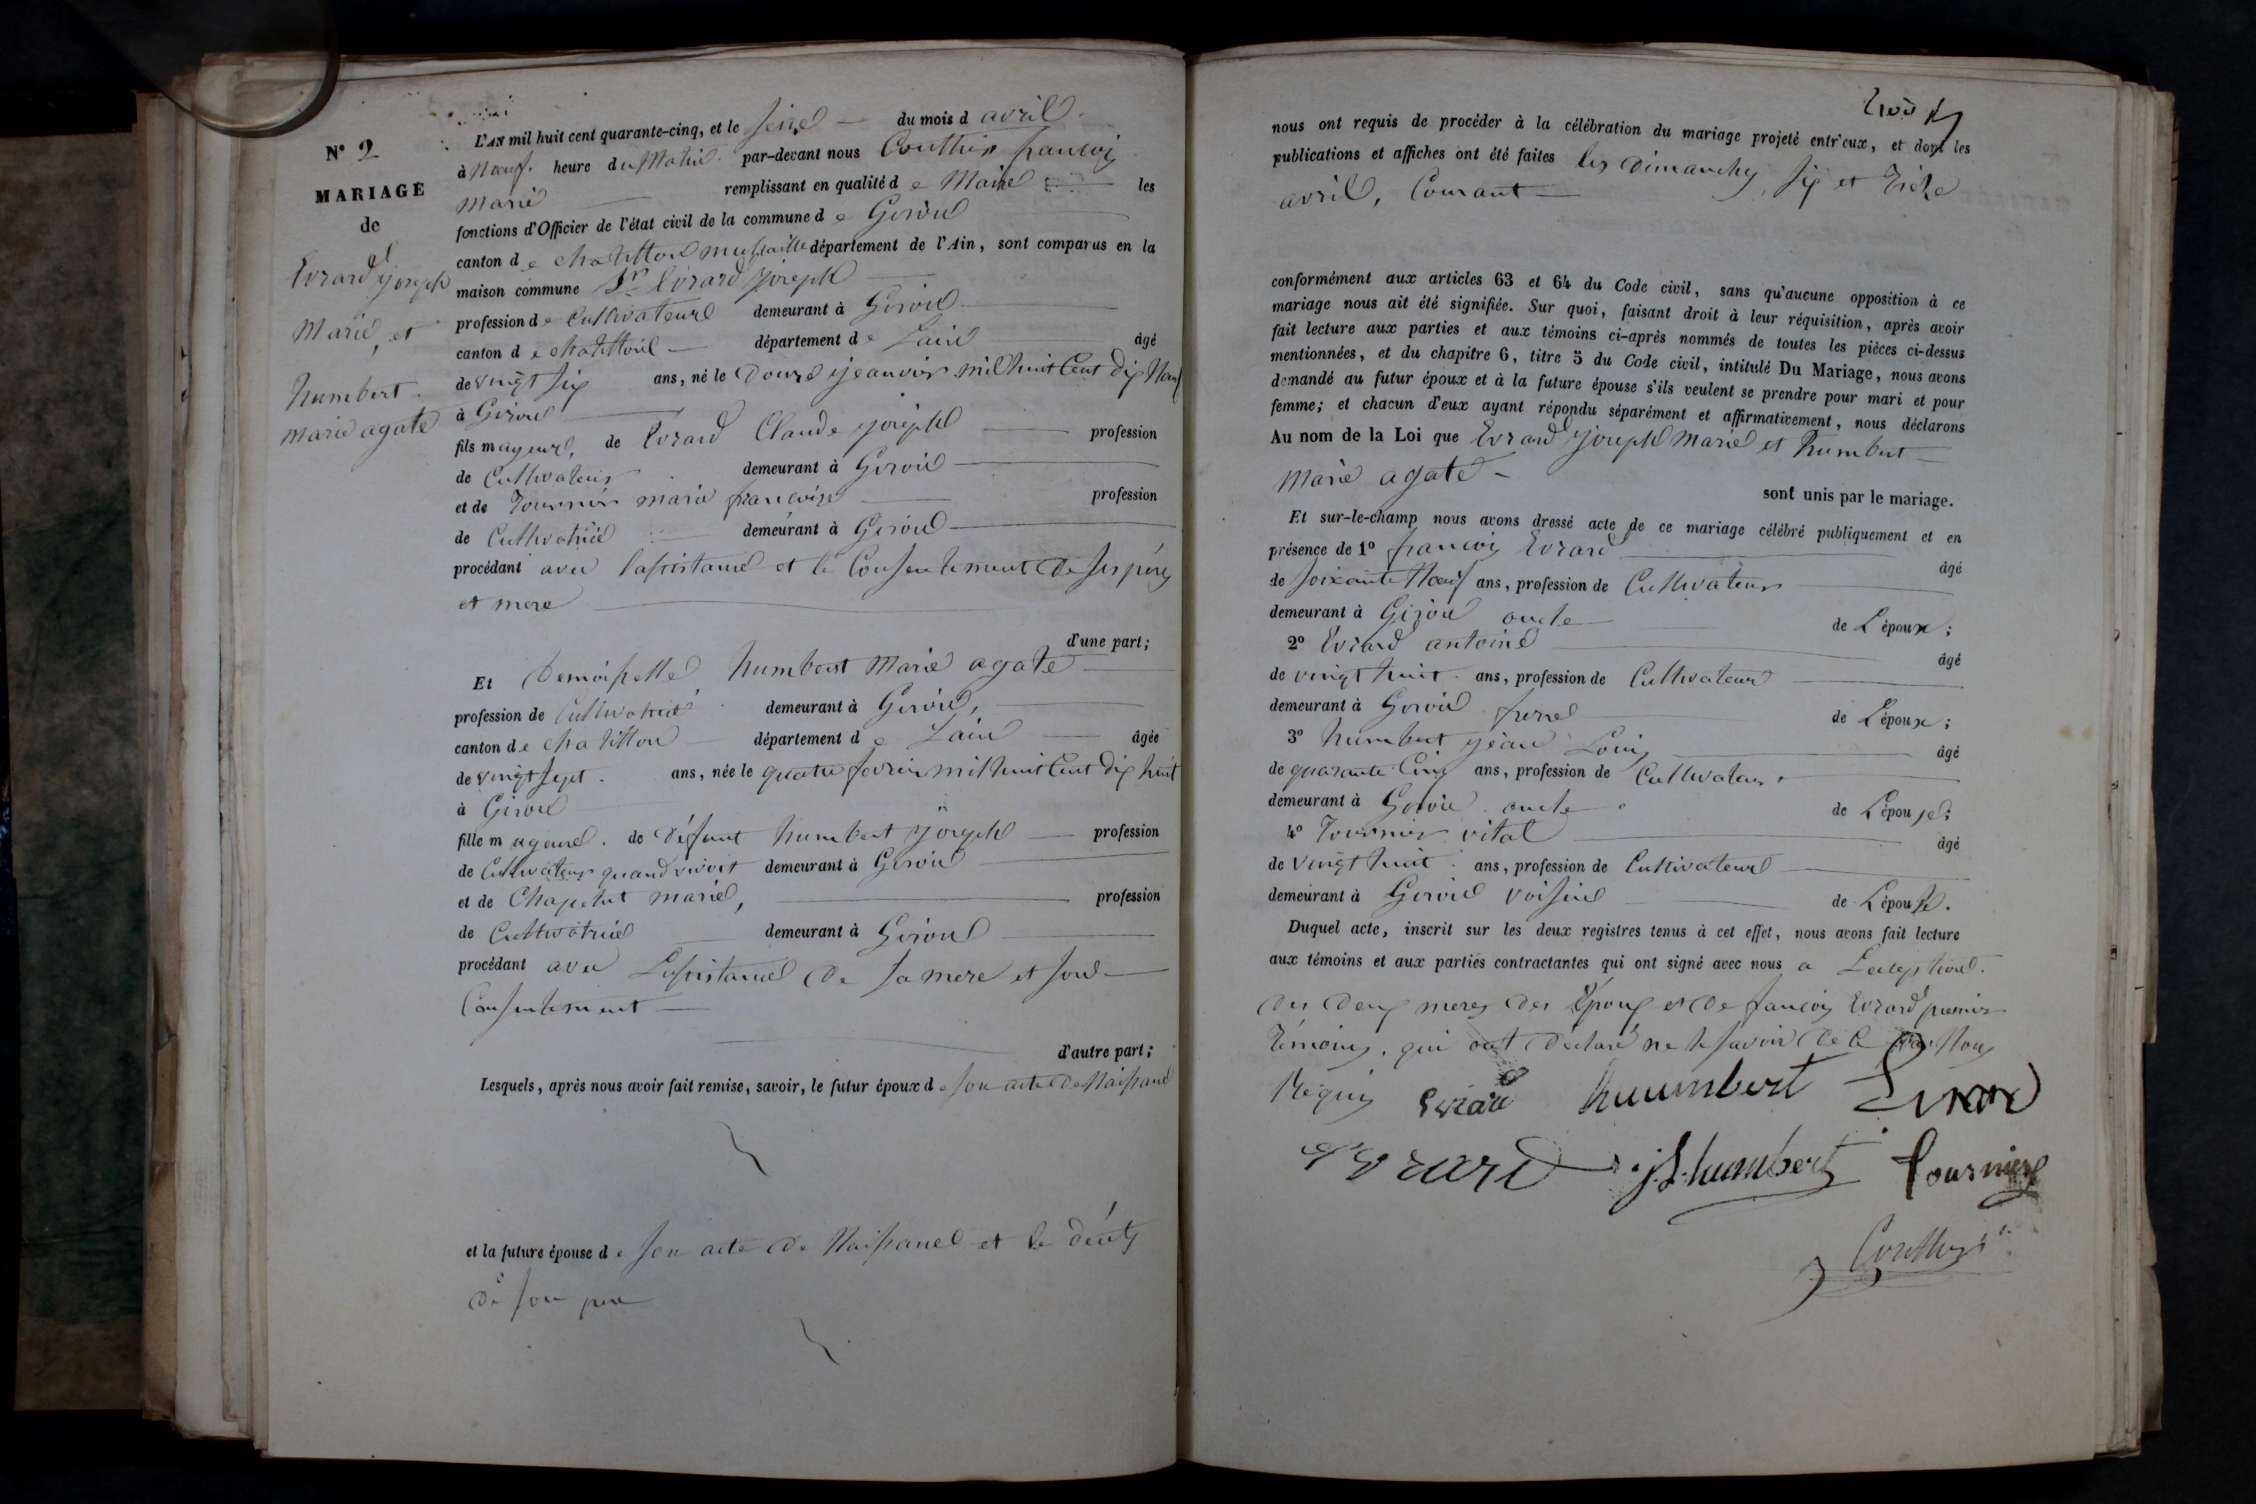 N° 2
MARIAGE
de
Evrard joseph
Marie, et
humbert
marie agate
L'AN mil huit cent quarante-cinq, et le seize du mois d avril
à Nœuf heure du Matin par-devant nous Couthier francois
marie remplissant en qualité d e Maire les
fonctions d'Officier de l'état civil de la commune d e Giron
canton d e chatillon michaille département de l'Ain, sont comparus en la
maison commune Sr Evrard joseph
profession de Cultivateur demeurant à Giron
canton d e chatillon département d e Lain âgé
de vingt six ans, né le Douze jeanvier mil huit Cent dix Neuf
à Giron
fils mageur, de Evrard Claude joseph profession
de Cultivateur demeurant à Giron
et de Tournier marie francoise profession
de Cultivatrice demeurant à Giron
procédant avec lassistance et le Consentement de ses pere
et mere
d'une part;
Et Demoiselle humbert Marie agate
profession de Cultivatrice demeurant à Giron,
canton de chatillon département d e Lain âgée
de vingt sept ans, née le quatre fevrier mil huit Cent Dix huit
à Giron
fille mageure de défunt humbert joseph profession
de Cultivateur quand vivoit demeurant à Giron
et de Chapelut marie, profession
de Cultivatrice demeurant à Giron
procédant avec Lassistance de sa mere et son
Consentement
d'autre part;
Lesquels, après nous avoir fait remise, savoir, le futur époux d e son acte de Naissance
et la future épouse d e son acte de Naissance et le décès
de son pere
nous ont requis de procéder à la célébration du mariage projeté entr'eux, et dont les
publications et affiches ont été faites les dimanches six et Treize
avril, Courant
conformément aux articles 63 et 64 du Code civil, sans qu'aucune opposition à ce
mariage nous ait été signifiée. Sur quoi, faisant droit à leur réquisition, après avoir
fait lecture aux parties et aux témoins ci-après nommés de toutes les pièces ci-dessus
mentionnées, et du chapitre 6, titre 5 du Code civil, intitulé Du Mariage, nous avons
demandé au futur époux et à la future épouse s'ils veulent se prendre pour mari et pour
femme; et chacun d'eux ayant répondu séparément et affirmativement, nous déclarons
Au nom de la Loi que Evrard joseph Marie et humbert
Marie agate
sont unis par le mariage.
Et sur-le-champ nous avons dressé acte de ce mariage célébré publiquement et en
présence de 1° francois Evrard âgé
de soixante Nœuf ans, profession de Cultivateur
demeurant à Giron oncle de L'époux;
2° Evrard antoine âgé
de vingt huit ans, profession de Cultivateur
demeurant à Giron frere de L'époux;
3° humbert jean Louis âgé
de quarante Cinq ans, profession de Cultivateur
demeurant à Giron oncle de L'épouse;
4° Tournier vital âgé
de vingt huit ans, profession de Cultivateur
demeurant à Giron voisin de L'épouse.
Duquel acte, inscrit sur les deux registres tenus à cet effet, nous avons fait lecture
aux témoins et aux parties contractantes qui ont signé avec nous a Lexception
des deux meres des Epoux et de francois Evrard premier
Témoins, qui ont déclaré ne le savoir de ce par Nous
Requis Evrard huumbert Evrard
evrard j. L. humbert tournier
Couthier